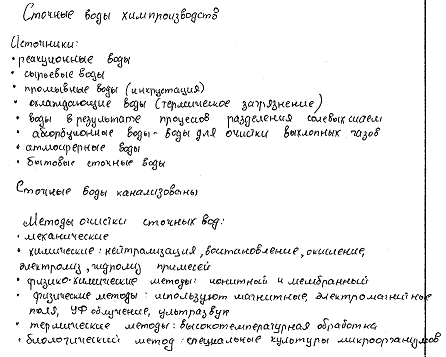 Сточные воды химпроизводств
Источники:
• реакционные воды
• сырьевые воды
• промывные воды (инкрустация)
• охлаждающие воды (термическое загрязнение)
• воды в результате процесов разделения солевых систем
• абсорбционные воды - воды для очистки выхлопных газов
• атмосферные воды
• бытовые сточные воды
Сточные воды канализованы
Методы очистки сточных вод:
• механические
• химические: нейтрализация, востановление, окисление,
электролиз, гидролиз примесей
• физико-химические методы: ионитный и мембранный
• физические методы: используют магнитные, электромагнитные
поля, УФ облучение, ультразвук
• термические методы: высокотемпературная обработка
• биологический метод: специальные культуры микроорганизмов